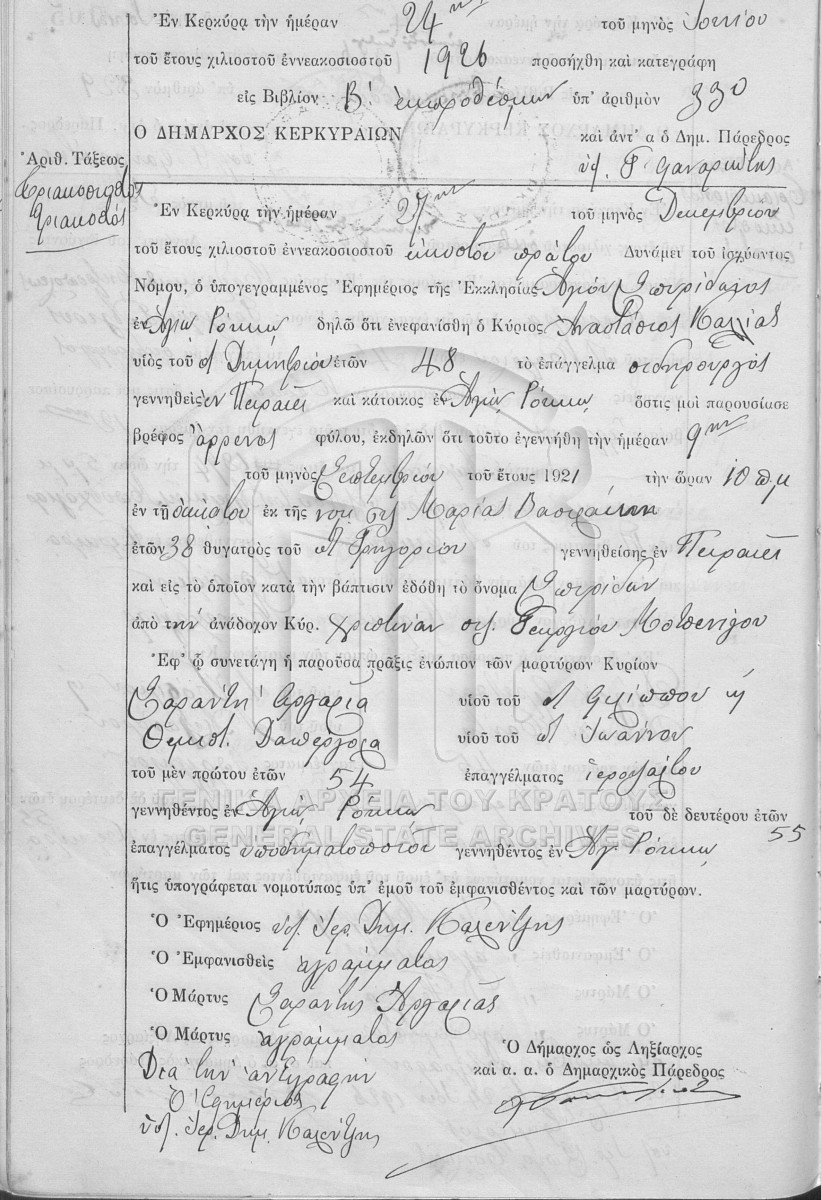 Ἐν Κερκύρᾳ τὴν ἡμέραν 24ην τοῦ μηνὸς Ἰουνίου
τοῦ ἔτους χιλιοστοῦ ἐννεακοσιοστοῦ 1926 προσήχθη καὶ κατεγράφη
εἰς Βιβλίον Β' ἐκπροθέσμων ὑπ' ἀριθμὸν 330
Ο ΔΗΜΑΡΧΟΣ ΚΕΡΚΥΡΑΙΩΝ καὶ ἀντ' α ὁ Δημ. Πάρεδρος
Ἀριθ. Τάξεως
Τριακοσιοστὸς
Τριακοστός
Ἐν Κερκύρᾳ τὴν ἡμέραν 27ην τοῦ μηνὸς Δεκεμβρίου
τοῦ ἔτους χιλιοστοῦ ἐννεακοσιοστοῦ εἰκοστοῦ πρώτου Δυνάμει τοῦ ἰσχύοντος
Νόμου, ὁ ὑπογεγραμμένος Ἐφημέριος τῆς Ἐκκλησίας Ἁγίου Σπυρίδωνος
ἐν Ἁγίῳ Ρόκκῳ δηλῶ ὅτι ἐνεφανίσθη ὁ Κύριος Ἀναστάσιος Καλλίας
υἱὸς τοῦ Δημητρίου ἐτῶν 48 τὸ ἐπάγγελμα σιδηρουργὸς
γεννηθεὶς ἐν Πειραιεῖ καὶ κάτοικος ἐν Ἁγίῳ Ρόκκῳ ὅστις μοὶ παρουσίασε
βρέφος ἄρρενος φύλου, ἐκδηλῶν ὅτι τοῦτο ἐγεννήθη τὴν ἡμέραν 9ην
τοῦ μηνὸς Σεπτεμβρίου τοῦ ἔτους 1921 τὴν ὥραν 10 π.μ
ἐν τῇ οἰκίᾳ του ἐκ τῆς νομ. συζ. Μαρίας
ἐτῶν 38 θυγατρὸς τοῦ Γρηγορίου γεννηθείσης ἐν Πειραιεῖ
καὶ εἰς τὸ ὁποῖον κατὰ τὴν βάπτισιν ἐδόθη τὸ ὄνομα Σπυρίδων
ἀπὸ τὴν ἀνάδοχον Κύρ. Χριστίναν συζ. Γεωργίου Μοτσενίγου
Ἐφ' ᾧ συνετάγη ἡ παροῦσα πρᾶξις ἐνώπιον τῶν μαρτύρων Κυρίων
Σαράντη υἱοῦ τοῦ Φιλίππου ἢ
Θεμιστ. υἱοῦ τοῦ Ἰωάννου
τοῦ μὲν πρώτου ἐτῶν 54 ἐπαγγέλματος ἱεροψάλτου
γεννηθέντος ἐν Ἁγίῳ Ρόκκῳ τοῦ δὲ δευτέρου ἐτῶν 55
ΓΕΝΙΚΑ ΑΡΧΕΙΑ ΤΟΥ ΚΡΑΤΟΥΣ
GENERAL STATE ARCHIVES
ἐπαγγέλματος ὑποδηματοποιοῦ γεννηθέντος ἐν Ἁγ. Ρόκκῳ
ἥτις ὑπογράφεται νομοτύπως ὑπ' ἐμοῦ τοῦ ἐμφανισθέντος καὶ τῶν μαρτύρων.
Ὁ Ἐφημέριος Ἱερ. Δημ. Καλέντζης
Ὁ Ἐμφανισθεὶς ἀγράμματος
Ὁ Μάρτυς Σαράντης
Ὁ Μάρτυς ἀγράμματος
Διὰ τὴν ἀντιγραφὴν
Ὁ Ἐφημέριος
Ἱερ. Δημ. Καλέντζης
Ὁ Δήμαρχος ὡς Ληξίαρχος
καὶ α. α. ὁ Δημαρχικὸς Πάρεδρος